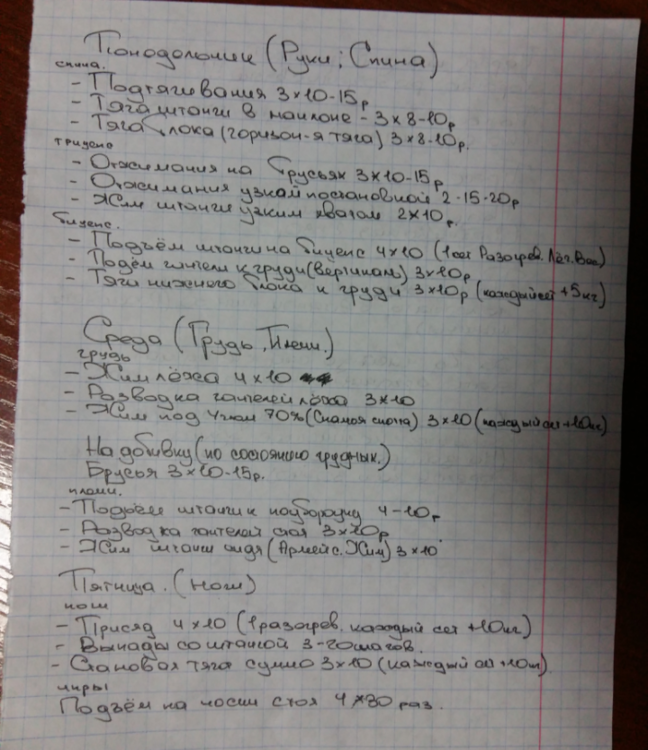 Понодольник (Руки; Спина)
спина.
- Подтягивания 3×10-15р
- Тяга штанги в наклоне - 3×8-10р
- Тяга блока (горизон-я тяга) 3×8-10р.
трицепс
- Отжимания на брусьях 3×10-15р
- Отжимания узкой постановкой 2-15-20р
- Жим штанги узким хватом 2×10р.
бицепс.
- Подъём штанги на бицепс 4×10 (1сет Разогрев. Лёг. Вес)
- Подём гантели к груди (вертикаль) 3×10р
- Тяги нижнего блока к груди 3×10р (каждый сет +5кг)
Среда (Грудь, Плечи.)
грудь
- Жим лёжа 4×10
- Разводка гантелей лёжа 3×10
- Жим под углом 70% (Скамья) 3×10 (каждый сет +10кг)
На добивку (по состоянию грудных.)
Брусья 3×10-15р.
плечи.
- Подъём штанги к подбородку 4-10р
- Разводка гантелей стоя 3×10р
- Жим штанги сидя (Армейс. Жим) 3×10
Пятница. (Ноги)
ноги
- Присяд 4×10 (1 разогрев, каждый сет +10кг)
- Выпады со штангой 3-20шагов.
- Становая тяга сумо 3×10 (каждый сет +10кг)
икры
Подъём на носки стоя 4×30 раз.